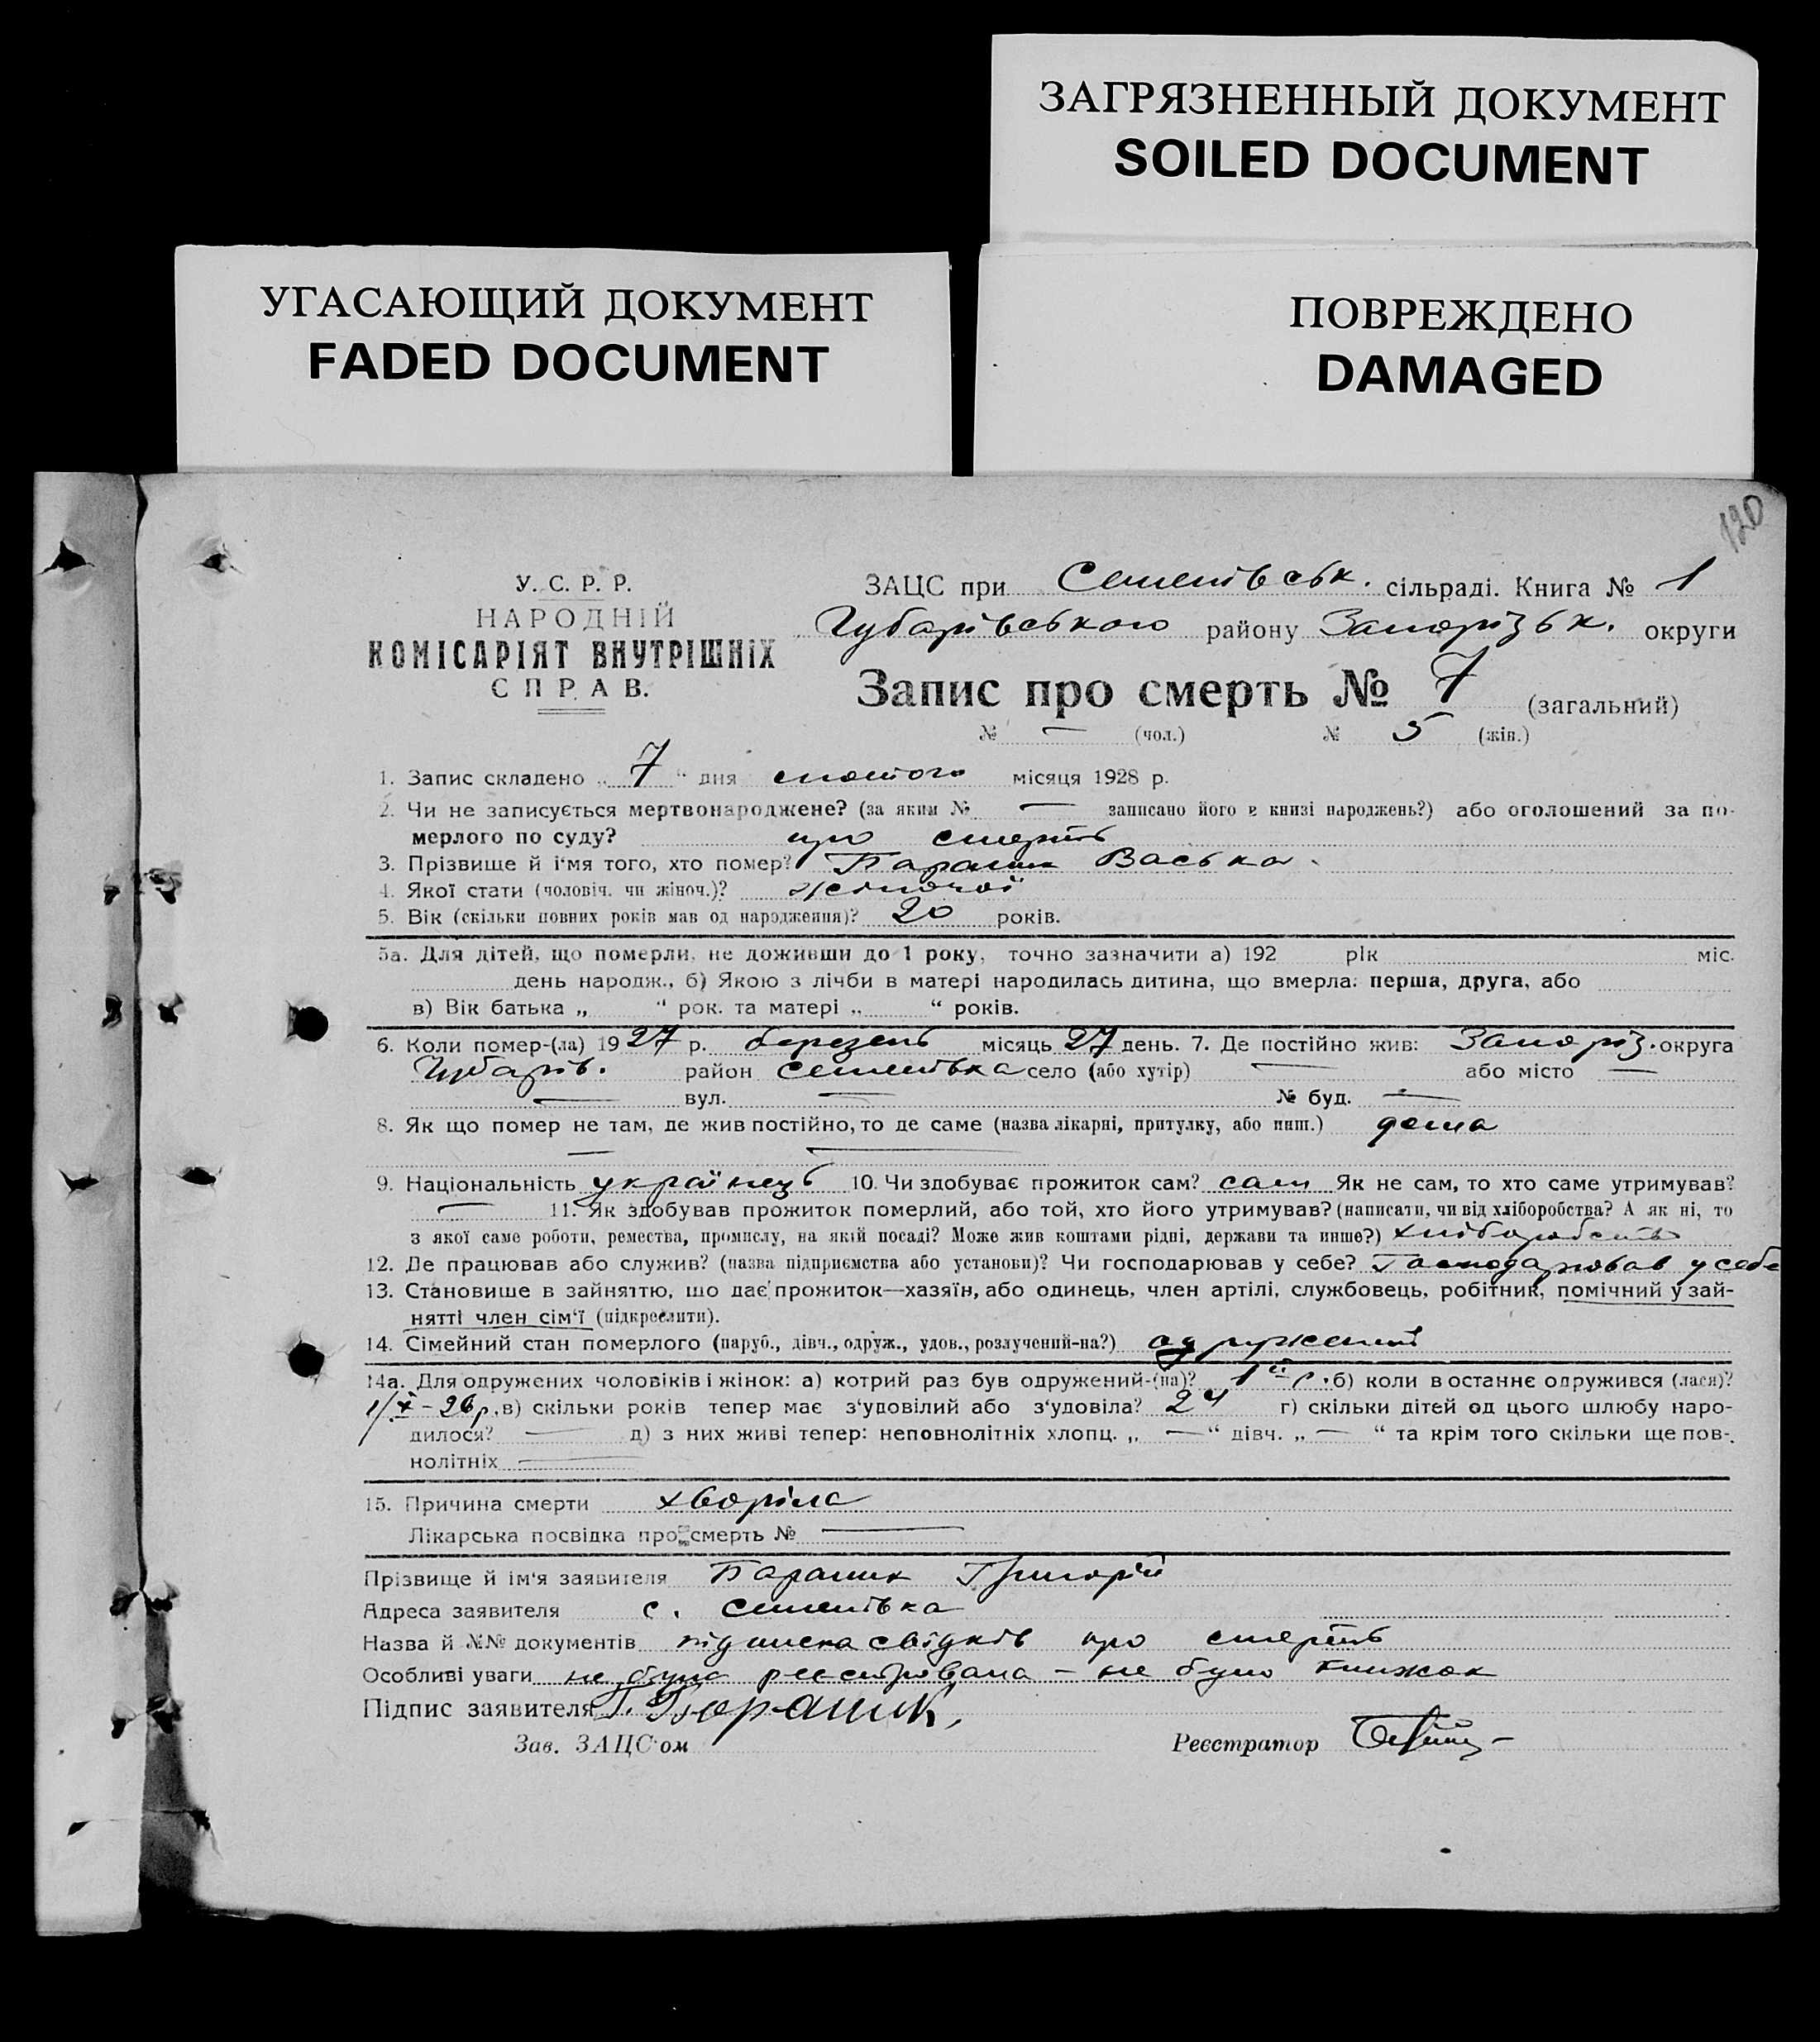 ЗАГРЯЗНЕННЫЙ ДОКУМЕНТ
SOILED DOCUMENT
УГАСАЮЩИЙ ДОКУМЕНТ
FADED DOCUMENT
ПОВРЕЖДЕНО
DAMAGED
120
У. С. Р. Р.
НАРОДНІЙ
КОМІСАРІЯТ ВНУТРІШНІХ
СПРАВ.
ЗАЦС при Семенівськ. сільраді. Книга № 1
Губарівського району Запорізьк. округи
Запис про смерть № 7 (загальний)
№ — (чол.) № 5 (жін.)
1. Запис складено „ 7 “ дня лютого місяця 1928 р.
2. Чи не записується мертвонароджене? (за яким № — записано його в книзі народжень?) або оголошений за по-
мерлого по суду? про смерть
3. Прізвище й і'мя того, хто помер? Васька
4. Якої стати (чоловіч. чи жіноч.)? жіночої
5. Вік (скільки повних років мав од народження)? 20 років.
5а. Для дітей, що померли, не доживши до 1 року, точно зазначити а) 192 рік міс.
день народж., б) Якою з лічби в матері народилась дитина, що вмерла: перша, друга, або
в) Вік батька „ “ рок. та матері „ “ років.
6. Коли помер-(ла) 1927 р. березень місяць 27 день. 7. Де постійно жив: Запоріз. округа
Губарів. район Семенівка село (або хутір) — або місто —
— вул. — № буд. —
8. Як що помер не там, де жив постійно, то де саме (назва лікарні, притулку, або инш.) дома
— —
9. Національність українець 10. Чи здобуває прожиток сам? сам Як не сам, то хто саме утримував?
— 11. Як здобував прожиток померлий, або той, хто його утримував? (написати, чи від хліборобства? А як ні, то
з якої саме роботи, ремества, промислу, на якій посаді? Може жив коштами рідні, держави та инше?) хліборобств
12. Де працював або служив? (назва підприємства або установи)? Чи господарював у себе? Господарював у себе
13. Становище в зайняттю, що дає прожиток—хазяїн, або одинець, член артілі, службовець, робітник, помічний у зай-
нятті член сім'ї (підкреслити).
14. Сімейний стан померлого (паруб., дівч., одруж., удов., розлучений-на?) одружений
14а. Для одружених чоловіків і жінок: а) котрий раз був одружений-(на)? 1й р. б) коли востаннє одружився (лася)?
1/X – 26 р. в) скільки років тепер має з'удовілий або з'удовіла? 24 г) скільки дітей од цього шлюбу наро-
дилося? — д) з них живі тепер: неповнолітніх хлопц. „ — “ дівч. „ — “ та крім того скільки ще пов-
нолітніх —
15. Причина смерти хворіла
Лікарська посвідка про смерть № —
Прізвище й ім'я заявителя Григорій
Адреса заявителя с. Семенівка
Назва й №№ документів підписка свідків про смерть
Особливі уваги не була реєстрована – не було книжок
Підпис заявителя Г.
Зав. ЗАЦС'ом Реєстратор